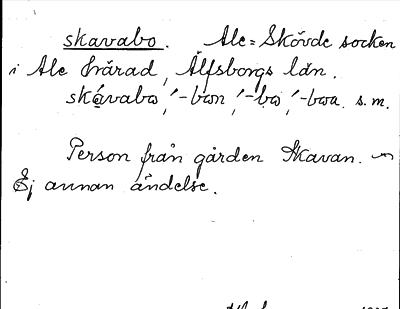 skavabo. Ale=Skövde socken
i Ale härad, Älfsborgs län.
skávabω, ´-bωn, ´-bω, ´-bωa. s.m.
Person från gården Skavan. ~
Ej annan ändelse.